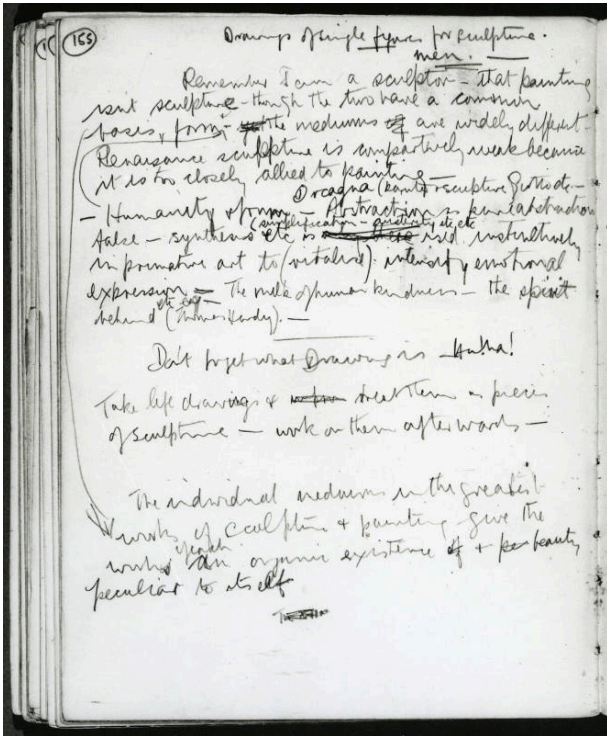 155
Drawings of single figures for sculpture.
men. —
Remember I am a sculptor — that painting
isnt sculpture — though the two have a common
basis, form — the mediums are widely different —
Renaisance sculpture is compartively weak because
it is too closely allied to painting —
Orcagna sculpture
— Humanity & form — Abstraction as pure abstraction
(simplification — etc etc
false — synthesis etc is used instinctively
in primative art to (vitalise) intensify emotional
expression — The milk of human kindness — the spirit
behind (Thomas Hardy). —
Don't forget what Drawing is — Ha! ha!
Take life drawings & treat them as pieces
of sculpture — work on them afterwards —
The individual mediums in the greatest
works of sculpture & painting give the
works each an organic existence & beauty
peculiar to itself